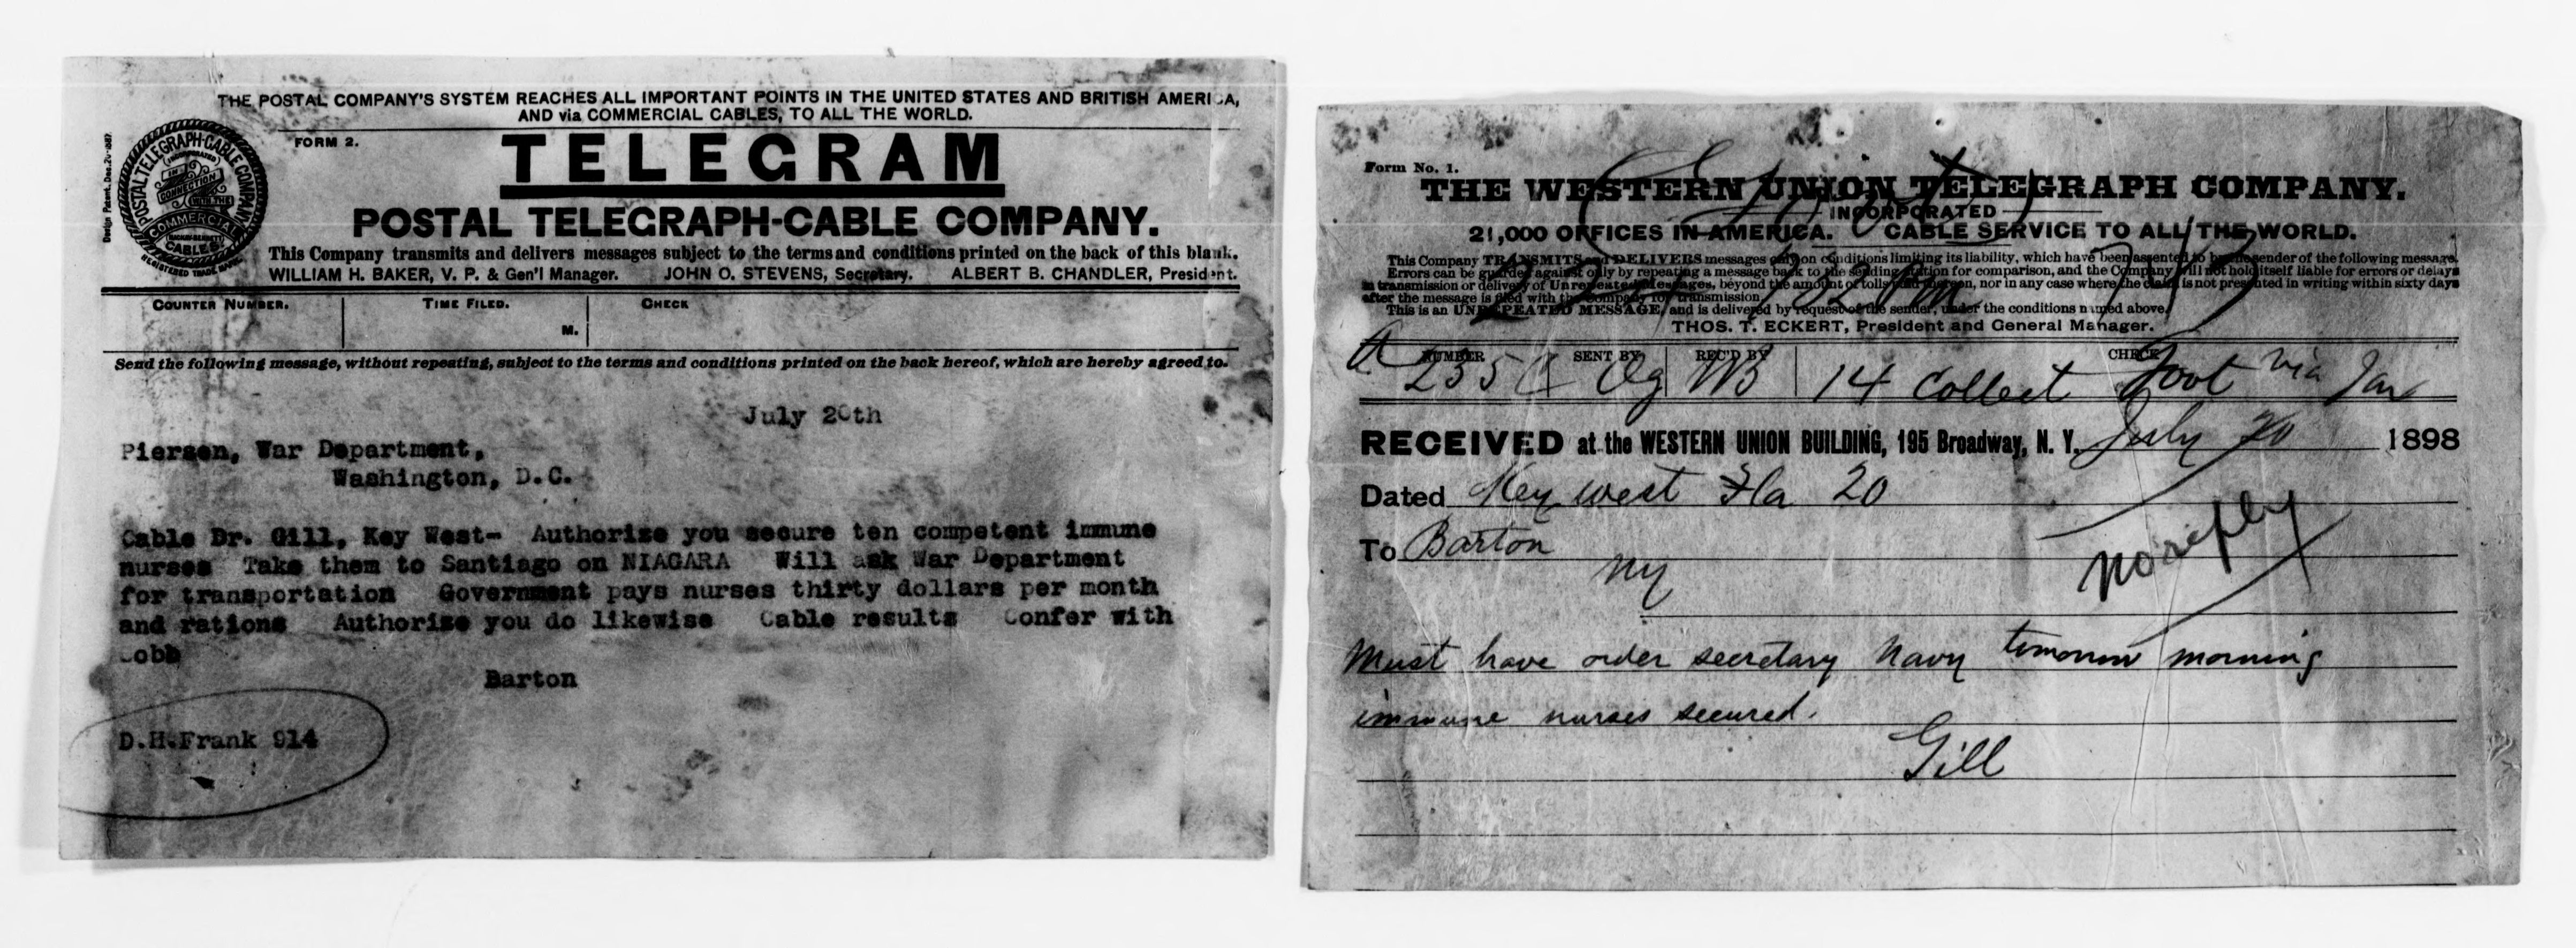 THE POSTAL COMPANY'S SYSTEM REACHES ALL IMPORTANT POINTS IN THE UNITED STATES AND BRITISH AMERICA,
AND via COMMERCIAL CABLES, TO ALL THE WORLD.
Design Patent. Dec. 20-1887.
POSTAL TELEGRAPH-CABLE COMPANY
(INCORPORATED)
IN
CONNECTION
WITH THE
COMMERCIAL
(MACKAY-BENNETT)
CABLES
REGISTERED TRADE MARK.
FORM 2.
TELEGRAM
POSTAL TELEGRAPH-CABLE COMPANY.
This Company transmits and delivers messages subject to the terms and conditions printed on the back of this blank.
WILLIAM H. BAKER, V. P. & Gen'l Manager. JOHN O. STEVENS, Secretary. ALBERT B. CHANDLER, President.
COUNTER NUMBER. TIME FILED. CHECK
M.
Send the following message, without repeating, subject to the terms and conditions printed on the back hereof, which are hereby agreed to.
July 20th
Piersen, War Department,
Washington, D.C.
Cable Dr. Gill, Key West- Authorize you secure ten competent immune
nurses Take them to Santiago on NIAGARA Will ask War Department
for transportation Government pays nurses thirty dollars per month
and rations Authorize you do likewise Cable results Confer with
Cobb
Barton
D.H.Frank 914
Form No. 1.
THE WESTERN UNION TELEGRAPH COMPANY.
INCORPORATED
21,000 OFFICES IN AMERICA. CABLE SERVICE TO ALL THE WORLD.
This Company TRANSMITS and DELIVERS messages only on conditions limiting its liability, which have been assented to by the sender of the following message.
Errors can be guarded against only by repeating a message back to the sending station for comparison, and the Company will not hold itself liable for errors or delays
in transmission or delivery of Unrepeated Messages, beyond the amount of tolls paid thereon, nor in any case where the claim is not presented in writing within sixty days
after the message is filed with the Company for transmission.
This is an UNREPEATED MESSAGE, and is delivered by request of the sender, under the conditions named above.
THOS. T. ECKERT, President and General Manager.
NUMBER SENT BY REC'D BY CHECK
A 235 Og WB 14 Collect Govt via
RECEIVED at the WESTERN UNION BUILDING, 195 Broadway, N. Y. July 20 1898
Dated Key west Fla 20
To Barton
NY
no reply
Must have order secretary Navy tomorrow morning
immune nurses secured.
Gill